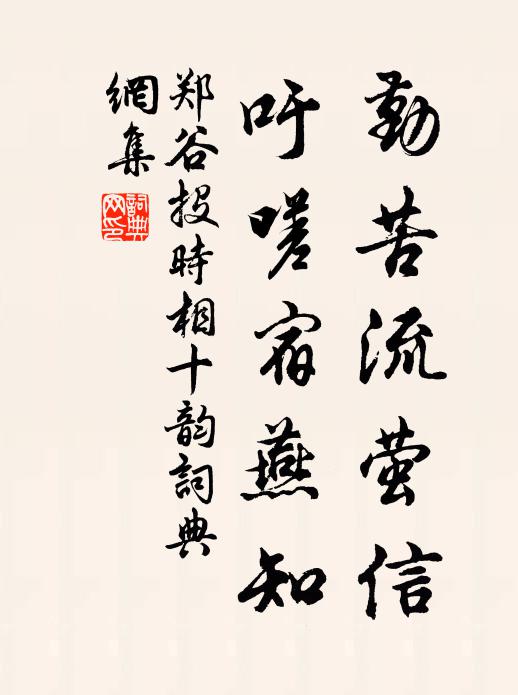 勤苦流萤信
吁嗟宿燕知
郑谷投時相十韵詞典
網集
詞典
网印